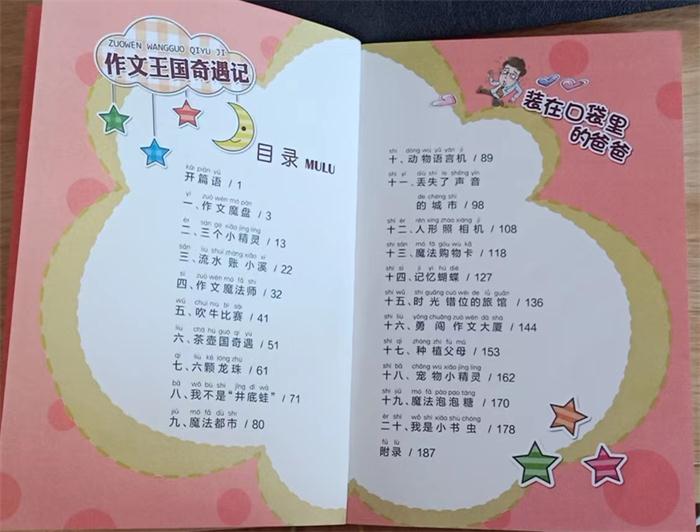 ZUOWEN WANGGUO QIYU JI
作文王国奇遇记
目录 MULU
kāi piān yǔ
开篇语 / 1
yī zuò wén mó pán
一、作文魔盘 / 3
èr sān gè xiǎo jīng líng
二、三个小精灵 / 13
sān liú shuǐ zhàng xiǎo xī
三、流水 账 小溪 / 22
sì zuò wén mó fǎ shī
四、作文魔法师 / 32
wǔ chuī niú bǐ sài
五、吹牛比赛 / 41
liù chá hú guó qí yù
六、茶壶国奇遇 / 51
qī liù kē lóng zhū
七、六颗龙珠 / 61
bā wǒ bú shì jǐng dǐ wā
八、我不是“井底蛙” / 71
jiǔ mó fǎ dū shì
九、魔法都市 / 80
装在口袋里
的爸爸
shí dòng wù yǔ yán jī
十、动物语言机 / 89
shí yī diū shī le shēng yīn
十一、丢失了 声 音
de chéng shì
的 城 市 / 98
shí èr rén xíng zhào xiàng jī
十二、人形 照 相机 / 108
shí sān mó fǎ gòu wù kǎ
十三、魔法购物卡 / 118
shí sì jì yì hú dié
十四、记忆蝴蝶 / 127
shí wǔ shí guāng cuò wèi de lǚ guǎn
十五、时 光 错位的旅馆 / 136
shí liù yǒng chuǎng zuò wén dà shà
十六、勇 闯 作文大厦 / 144
shí qī zhòng zhí fù mǔ
十七、种 植父母 / 153
shí bā chǒng wù xiǎo jīng líng
十八、宠 物小精灵 / 162
shí jiǔ mó fǎ pào pao táng
十九、魔法泡泡糖 / 170
èr shí wǒ shì xiǎo shū chóng
二十、我是小 书 虫 / 178
fù lù
附录 / 187